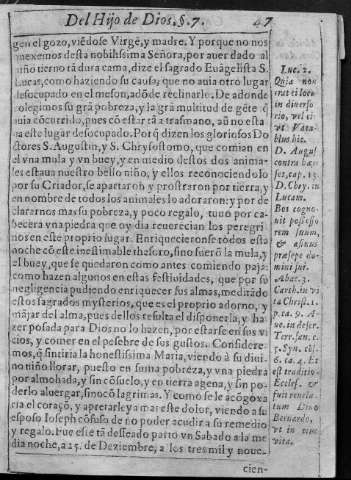 Del Hijo de Dios. §. 7. 47
gen el gozo, viẽdose Virgẽ, y madre. Y porque no nos
quexemos desta nobilissima Señora, por auer dado al
niño tierno tã dura cama, dize el sagrado Euãgelista S.
Lucas, como haziendo su causa, que no auia otro lugar
desocupado en el meson, adõde reclinarle. De adonde
colegimos su grã pobreza, y la grã multitud de gẽte q̃
auia cõcurrido, pues cõ estar tã a trasmano, aũ no esta
ua este lugar desocupado. Porq̃ dizen los gloriosos Do
ctores S. Augustin, y S. Chrysostomo, que comian en
el vna mula y vn buey, y en medio destos dos anima-
les estaua nuestro bello niño, y ellos reconociendolo
por su Criador, se apartaron y prostraron por tierra, y
en nombre de todos los animales lo adoraron: y por de
clararnos mas su pobreza, y poco regalo, tuuo por ca-
becera vna piedra que oy dia reuerecian los peregri
nos en este proprio lugar. Enriquecieronse todos esta
noche cõ este inestimable thesoro, sino fuerõ la mula, y
el buey, que se quedaron como antes comiendo paja:
como hazen algunos en estas festiuidades, que por su
negligencia pudiendo enriquecer sus almas, meditãdo
estos sagrados mysterios, que es el proprio adorno, y
mãjar del alma, pues dellos resulta el disponerla, y ha
zer posada para Dios no lo hazen, por estarse en sus vi
cios, y comer en el pesebre de sus gustos. Considere-
mos, q̃ sintiria la honestissima Maria, viendo à su diui-
no niño llorar, puesto en suma pobreza, y vna piedra
por almohada, y sin cõsuelo, y en tierra agena, y sin po-
derlo aluergar, sino cõ lagrimas. Y como se le acõgoxa
ria el coraçõ, y apretarle ya mas este dolor, viendo a su
esposo Ioseph cõfuso de no poder acudir a su remedio
y regalo. Fue este tã desseado parto vn Sabado a la me
dia noche, a 25. de Deziembre, a los tres mil y noue-
cien-
Luc. 2.
Quia non
erat ei locus
in diuerso
rio, vel vt
Vata-
blus hic.
D. Augus
contra hæ-
D. Chry. in
Lucam.
Bos cogno-
uit possesso
rem suum,
& asinus
præsepe do
mini sui.
vita.